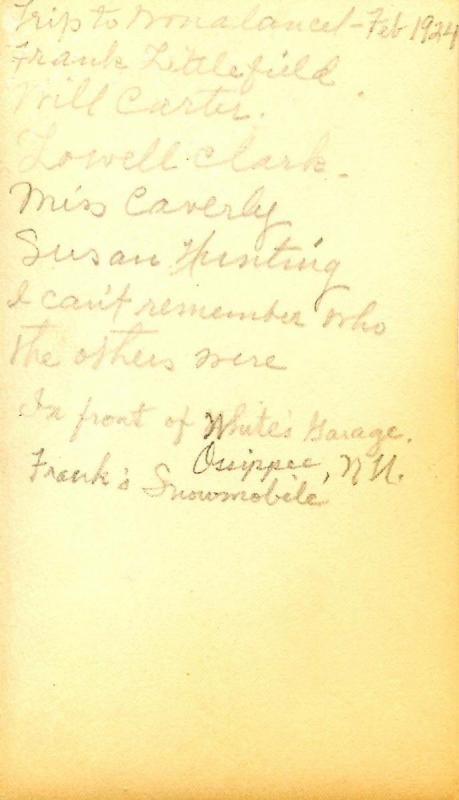 Trip to Wonalancet - Feb 1924
Frank Littlefield
Will Carter.
Lowell Clark.
Miss Caverly
Susan Hunting
I can't remember who
the others were
In front of White's Garage.
Ossippee, N.H.
Frank's Snowmobile